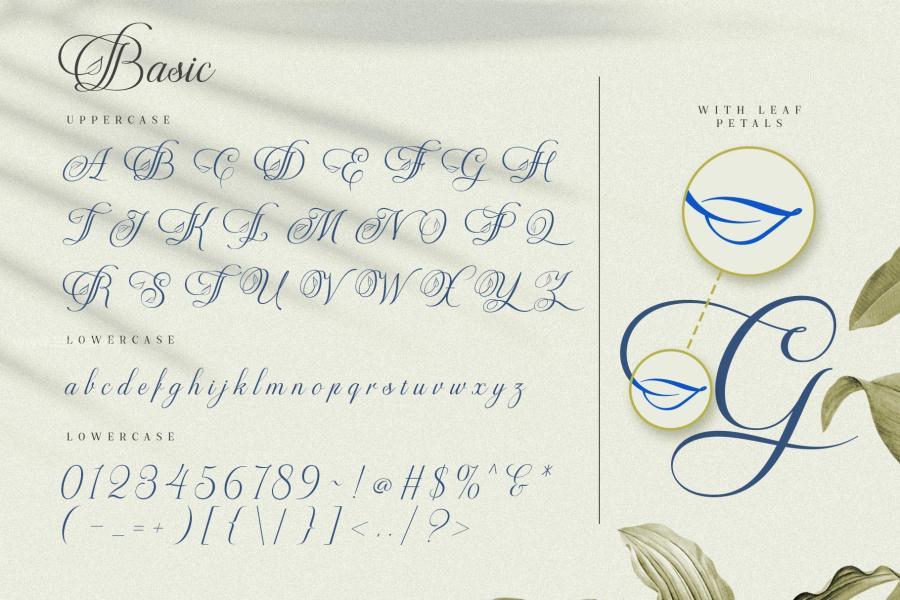 Basic
UPPERCASE
A B C D E F G H
I J K L M N O P Q
R S T U V W X Y Z
LOWERCASE
a b c d e f g h i j k l m n o p q r s t u v w x y z
LOWERCASE
0123456789~!@#$%^&*
(-_=+)[{\|}]<../?>
WITH LEAF
PETALS
G